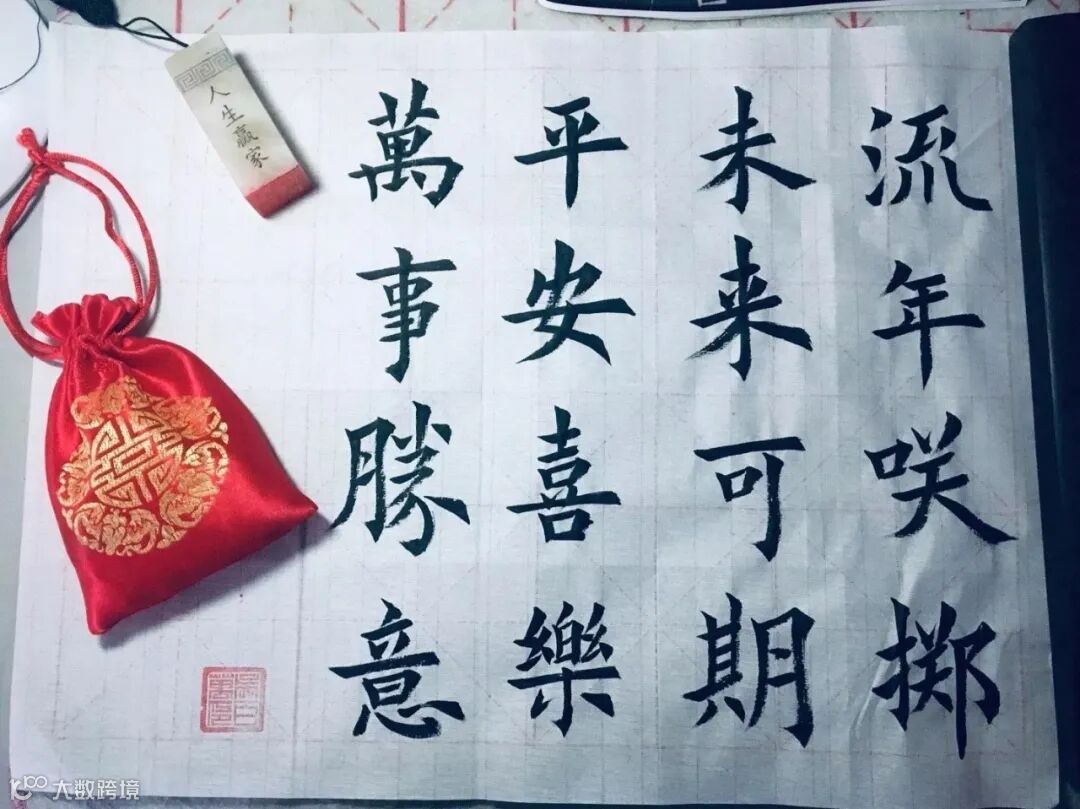 流年咲掷
未来可期
平安喜樂
萬事勝意
人生赢家
大数跨境